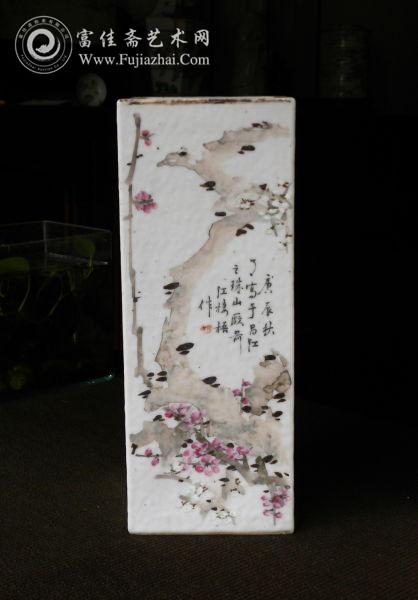 富佳斋艺术网
www.Fujiazhai.com
庚辰秋
月寫于昌江
之珠山殿前
江慎梧
作